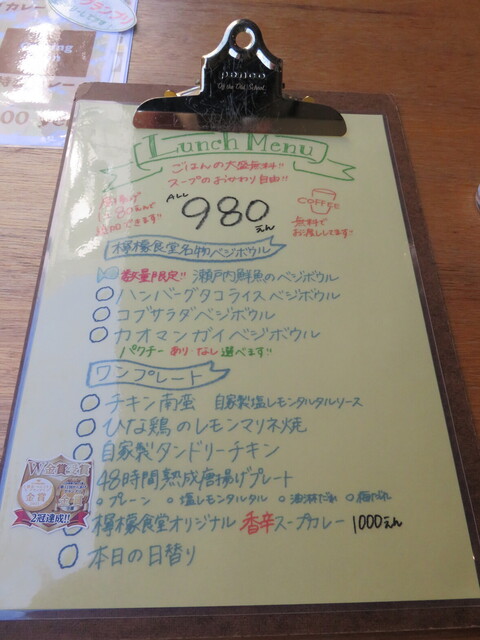 カレー
ponoo
Of the Old School
Lunch Menu
ごはんの大盛無料!!
スープのおかわり自由!!
ALL
980
えん
COFFEE
無料で
お渡ししてます!!
檸檬食堂名物ベジボウル
数量限定!! 瀬戸内鮮魚のベジボウル
ハンバーグタコライスベジボウル
コブサラダベジボウル
カオマンガイベジボウル
パクチー あり・なし 選べます!!
ワンプレート
チキン南蛮 自家製塩レモンタルタルソース
ひな鶏のレモンマリネ焼
自家製タンドリーチキン
48時間熟成唐揚げプレート
プレーン 塩レモンタルタル
W金賞受賞
金賞
2冠達成!!
檸檬食堂オリジナル 香辛スープカレー 1000えん
本日の日替り